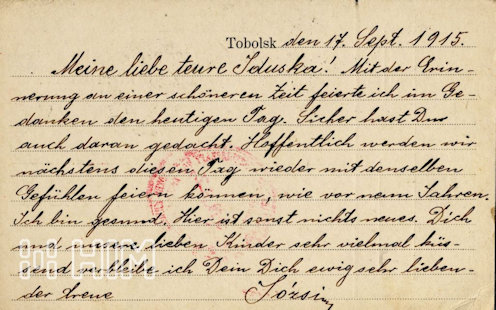 Tobolsk den 17. Sept. 1915.
Meine liebe teure Iduska! Mit der Erin-
nerung an einer schöneren Zeit feierte ich im Ge-
danken den heutigen Tag. Sicher hast Du
auch daran gedacht. Hoffentlich werden wir
nächstens diesen Tag wieder mit denselben
Gefühlen feiern können, wie vor neun Jahren.
Ich bin gesund. Hier ist sonst nichts neues. Dich
und meine lieben Kinder sehr vielmal küs-
send verbleibe ich Dein Dich ewig sehr lieben-
der treue Józsi
HIM